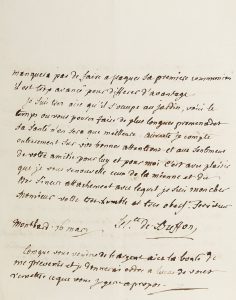 manquera pas de faire a paques sa premiere communion
il est trop avancé pour differer d'avantage.
Je suis bien aise qu'il s'occupe au jardin, voici le
temps ou vous pouvez faire de plus longues promenades
sa santé n'en sera que meilleure. Je compte
entierement sur vos bonnes attentions et aux sentimens
de votre amitié pour luy et pour moi. C'est avec plaisir
que je vous renouvelle ceux de la mienne et du
tres sincer attachement avec lequel je suis mon cher
monsieur votre tres humble et tres obeiss. serviteur
Montbard 16 mars
de Buffon
Lorsque vous aurez d'argent aiez la bonté de
me prevenir et j'y donnerai ordre a Lucas de vous
remettre ce que vous jugerez a propos.